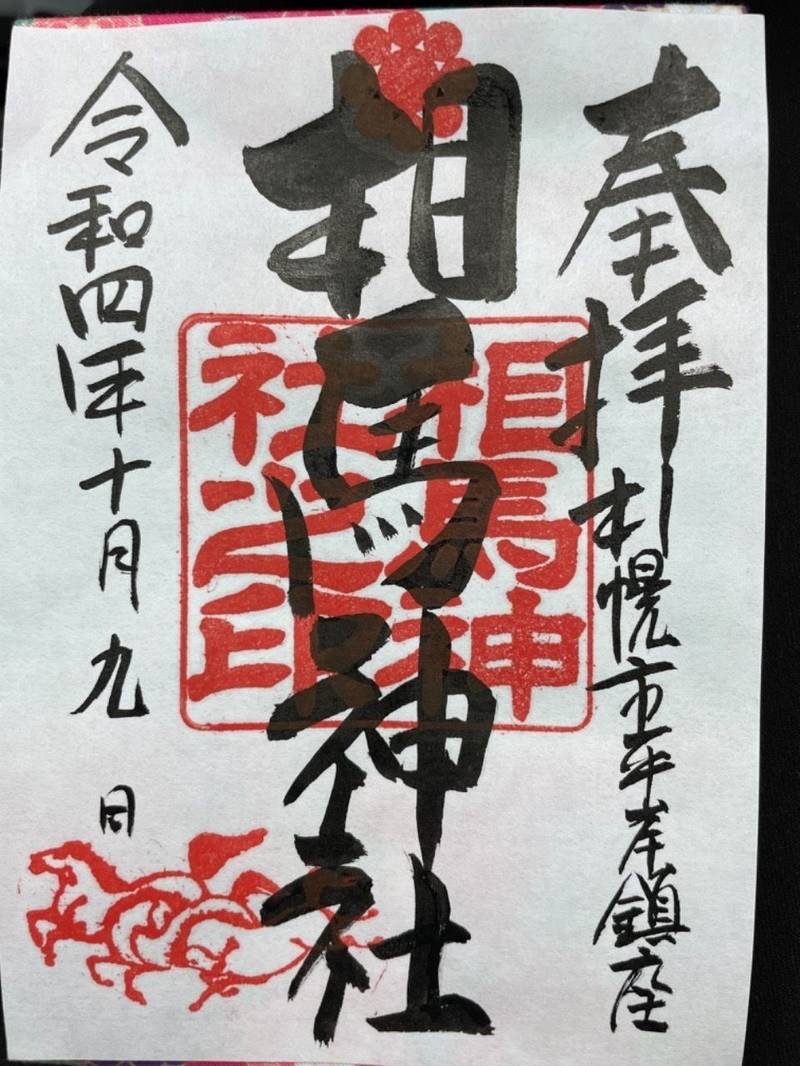 奉拝
札幌市平岸鎮座
相馬神社
相馬神
社之印
令和四年十月九日